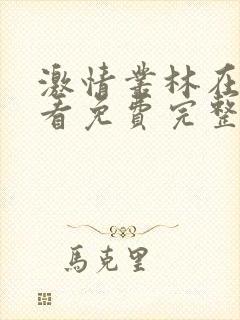 激情叢林在
看免費完整
馬克里